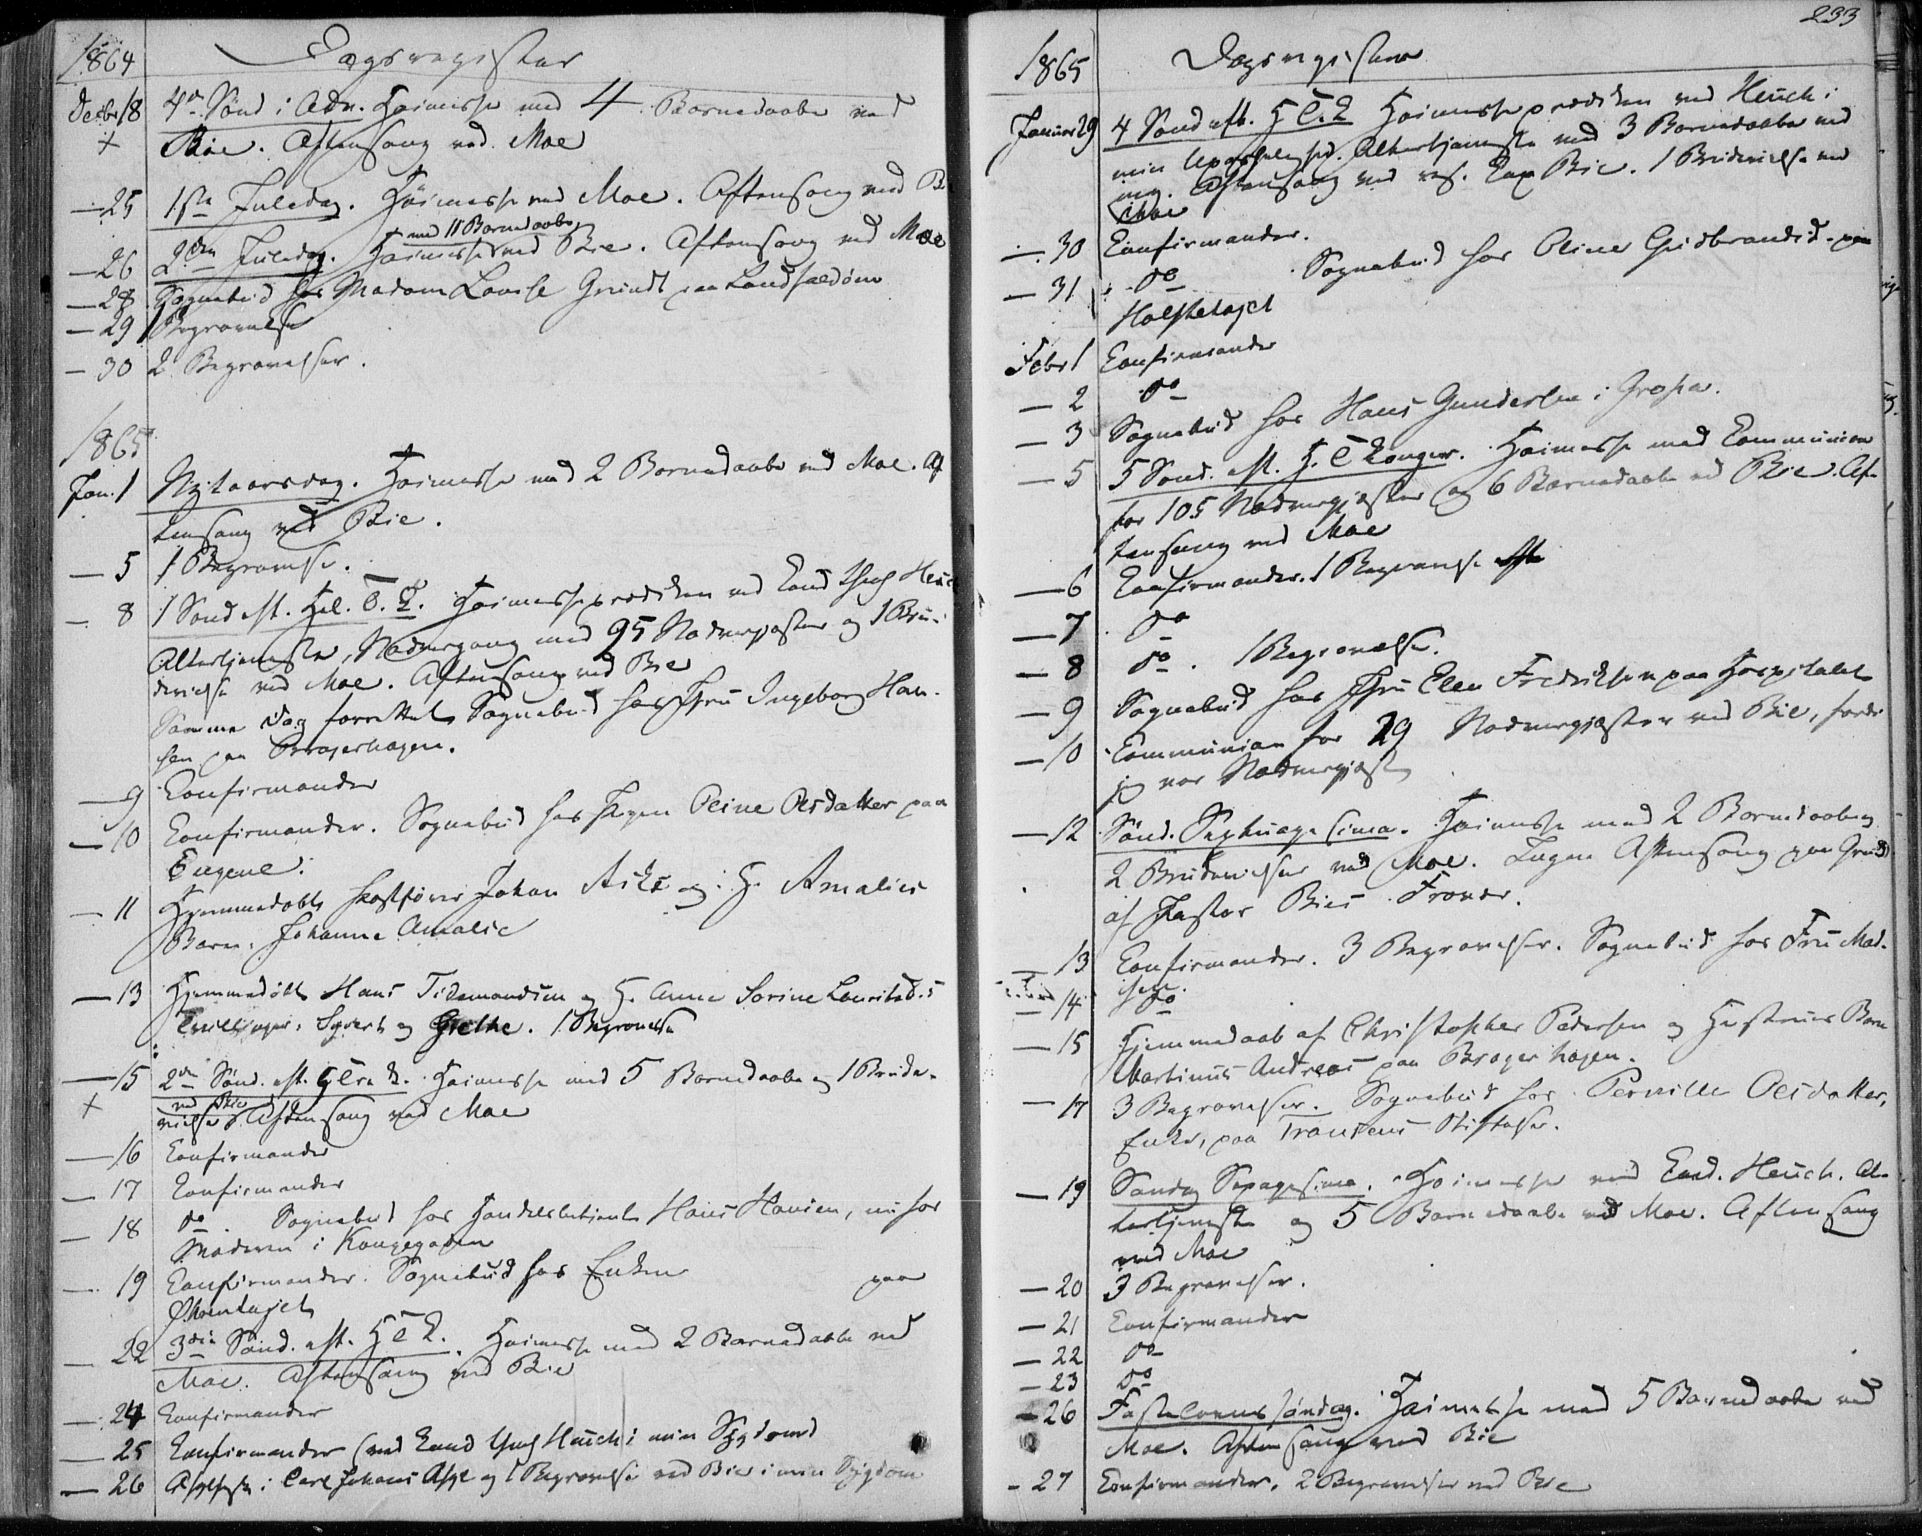 1864 Dagsregister
Decbr 18 4de Sønd i Adv. Høimesse med 4 Barnedaabe ved
+ Bie. Aftensang ved Moe
— 25 1ste Juledag. Høimesse ved Moe. Aftensang ved B
med 11 Barnedaabe
— 26 2den Juledag. Høimesse ved Bie. Aftensang ved Moe
— 28 Sognebud hos Madam Lovise Grundt paa
— 29 1 Begravelse
— 30 2 Begravelser.
1865
Jan. 1 Nytaarsdag. Høimesse med 2 Barnedaabe ved Moe. Af
tensang ved Bie.
— 5 1 Begravelse.
— 8 1 Sønd eft. Hel. 3. K. Høimesseprædiken ved Cand theol Heuch
Altertjeneste, Nadvergang med 95 Nadvergjæster og 1 Bru-
devielse ved Moe. Aftensang ved Bie
Samme Dag forrettet Sognebud hos Ingeborg Han-
sen paa Bragerhagen.
— 9 Confirmander
— 10 Confirmander. Sognebud hos Pigen Oline Olsdatter paa
Eugene.
— 11 Hjemmedøbt Johan og H. Amalies
Barn, Johanne Amalie
— 13 Hjemmedøbt Hans Tidemandsen og H. Anne Sorine Lauritsd.s
Tvillinger, Syvert og Grethe. 1 Begravelse
— 15 2den Sønd. eft. H 3 K. Høimesse med 5 Barnedaabe og 1 Brude-
ved Bie
+ vielse. Aftensang ved Moe
— 16 Confirmander
— 17 Confirmander
— 18 do. Sognebud hos Handelsbetjent Hans Hansen, nu hos
Moderen i Kongegaden
— 19 Confirmander. Sognebud hos Enken paa
— 22 3die Sønd. eft. H 3 K. Høimesse med 2 Barnedaabe ved
Moe. Aftensang ved Bie
— 24 Confirmander
25 Confirmander (ved Cand theol Heuch i min Sygdom)
— 26 i Carl Johans og 1 Begravelse ved Bie i min Sygdom
233
1865 Dagsregister
Januar 29 4 Sønd eft. H 3 K Høimesseprædiken ved Heuch i
min Upasselighed. Altertjeneste med 3 Barnedaabe ved
mig. Aftensang ved res. Cap Bie. 1 Brudevielse ved
Moe
— 30 Confirmander.
— 31 do Sognebud hos Oline Gudbrandsd. paa
Febr 1 Confirmander
— 2 do
— 3 Sognebud hos Hans Gundersen i
— 5 5 Sønd. eft. H. 3 Konger. Høimesse med Communion
for 105 Nadvergjæster og 6 Barnedaabe ved Bie. Af-
tensang ved Moe
— 6 Confirmander. 1 Begravelse
— 7 do
— 8 do. 1 Begravelse.
— 9 Sognebud hos Ellen Fredriksen paa Hospitalet
— 10 Communion for 29 Nadvergjæster ved Bie, fordi
jeg var Nadvergjæst
— 12 Sønd. Septuagesima. Høimesse med 2 Barnedaabe og
2 Brudevielser ved Moe. Ingen Aftensang paa Grund
af Pastor Bies
— 13 Confirmander. 3 Begravelser. Sognebud hos Fru Mad-
sen.
— 14 do
— 15 Hjemmedaab af Christopher Pedersen og Hustrues Barn
Martinus Andreas paa Bragerhagen.
— 17 3 Begravelser. Sognebud hos Pernille Olsdatter,
Enke, paa Tronsens Stiftelse.
— 19 Søndag Sexagesima. Høimesse ved Cand. Heuch. Al-
tertjeneste og 5 Barnedaabe ved Moe. Aftensang
ved Moe
— 20 3 Begravelser.
— 21 Confirmander
— 22 do
— 23 do
— 26 Fastelavnssøndag. Høimesse med 5 Barnedaabe ved
Moe. Aftensang ved Bie
- 27 Confirmander. 2 Begravelser ved Bie